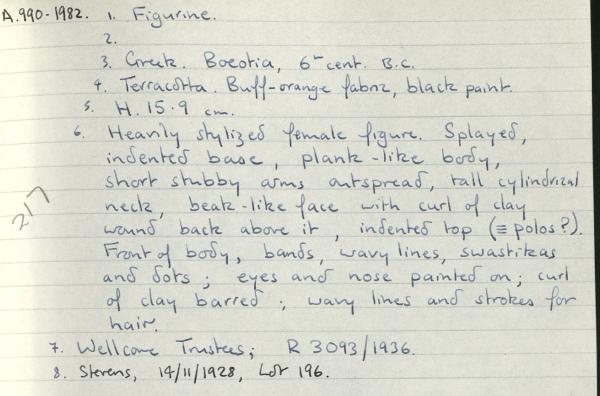 A.990-1982. 1. Figurine.
2.
3. Greek. Boeotia, 6th cent. B.C.
4. Terracotta. Buff-orange fabric, black paint.
5. H. 15.9 cm.
6. Heavily stylized female figure. Splayed,
indented base, plank-like body,
short stubby arms outspread, tall cylindrical
neck, beak-like face with curl of clay
wound back above it, indented top (≡ polos?).
217
Front of body, bands, wavy lines, swastikas
and dots; eyes and nose painted on; curl
of clay barred; wavy lines and strokes for
hair.
7. Wellcome Trustees; R 3093/1936.
8. Stevens, 14/11/1928, Lot 196.